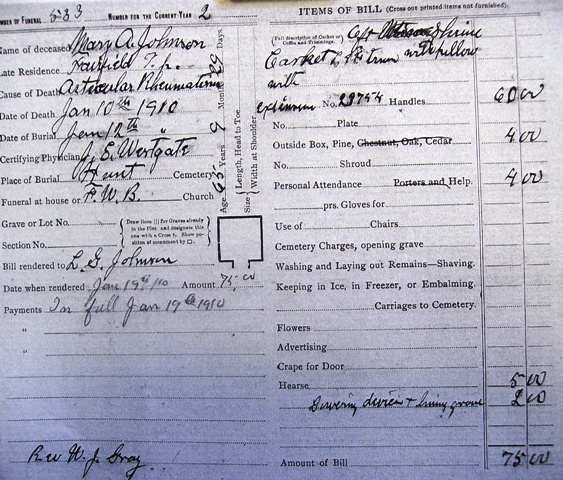 NUMBER OF FUNERAL 533 NUMBER FOR THE CURRENT YEAR 2
Name of deceased Mary A. Johnson
Late Residence Fairfield T.p.
Cause of Death Articular Rheumatism
Date of Death Jan 10th 1910
Date of Burial Jan 12th "
Certifying Physician J. E. Westgate
Place of Burial Hunt Cemetery
Funeral at house or F. W. B. Church
Age 65 Years 9 Months 29 Days.
Size { Length, Head to Toe
Width at Shoulder
Grave or Lot No.
Section No.
{ Draw lines ||| for Graves already in the Plot and designate this one with a Cross †. Show position of monument by □. }
Bill rendered to L. G. Johnson
Date when rendered Jan 19th /10 Amount 75.00
Payments In full Jan 19th 1910
"
"
Rev W. J. Gray
ITEMS OF BILL (Cross out printed items not furnished).
(Full description of Casket or Coffin and Trimmings.) Shrine
Casket with pillow
with
extension No. 23754 Handles 60 00
No. Plate
Outside Box, Pine, Chestnut, Oak, Cedar 4 00
No. Shroud
Personal Attendance Porters and Help. 4 00
prs. Gloves for
Use of Chairs
Cemetery Charges, opening grave
Washing and Laying out Remains—Shaving.
Keeping in Ice, in Freezer, or Embalming.
Carriages to Cemetery.
Flowers
Advertising
Crape for Door
Hearse 5 00
Lowering device + lining grave 2 00
Amount of Bill 75 00